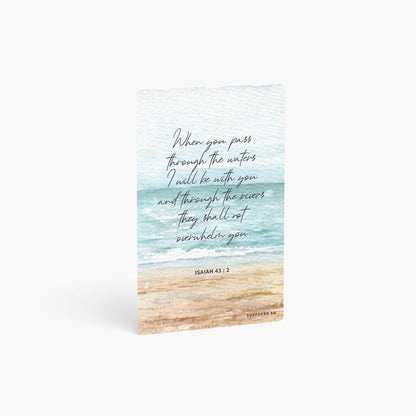 When you pass
through the waters
I will be with you
and through the rivers
they shall not
overwhelm you
ISAIAH 43 : 2